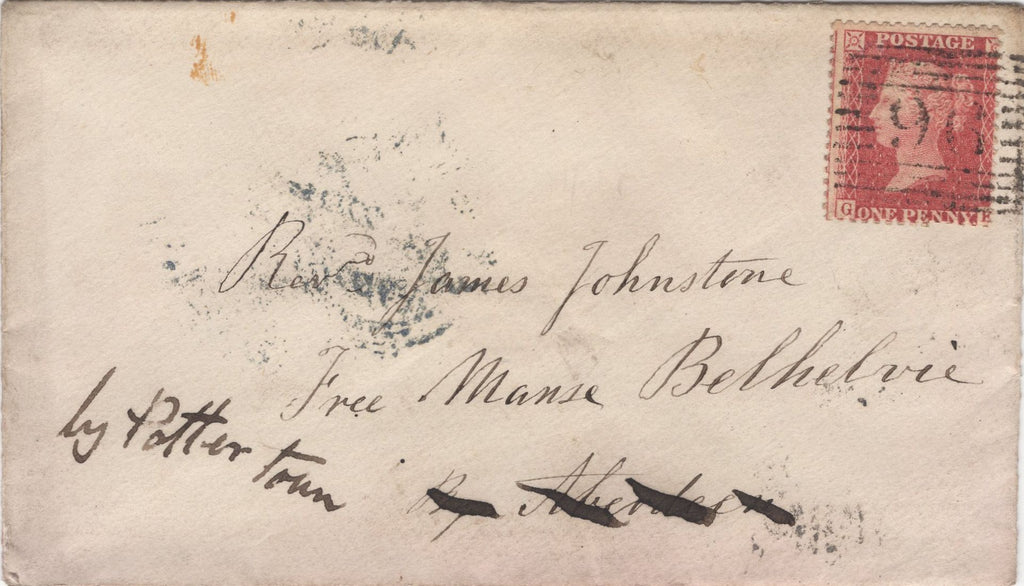 POSTAGE
96
G ONE PENNY E
Revd James Johnstone
Free Manse Belhelvie
By Aberdeen
by Potter town